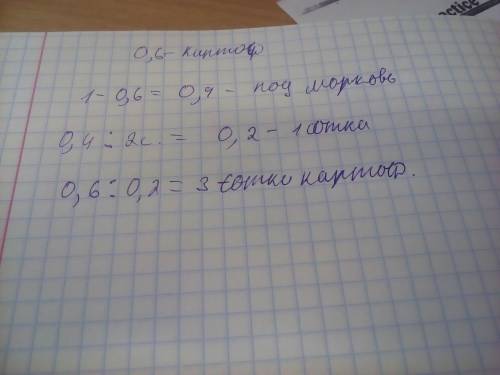 ctice
0,6 - картоф
1 - 0,6 = 0,4 - под морковь
0,4 : 2с. = 0,2 - 1 сотка
0,6 : 0,2 = 3 сотки картоф.